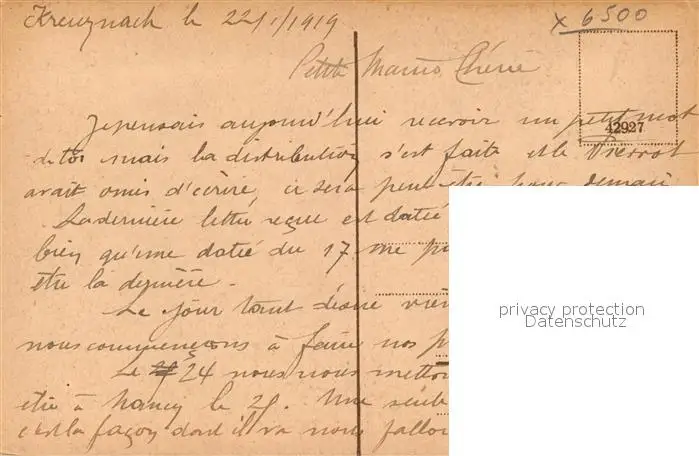 Kreuznach le 22/1/1919
x 6500
Petite Chérie
42927
Je pensais aujourd'hui recevoir un petit mot
de toi mais la distribution s'est faite et le
avait omis d'écrire, ce sera peut-être pour demain
La dernière lettre reçue est datée
bien qu'une datée du 17 me
être la dernière.
Le jour tant désiré
nous commençons à faire nos
privacy protection
Datenschutz
Le 24 nous nous
être à Nancy le Une
c'est la façon dont il va nous